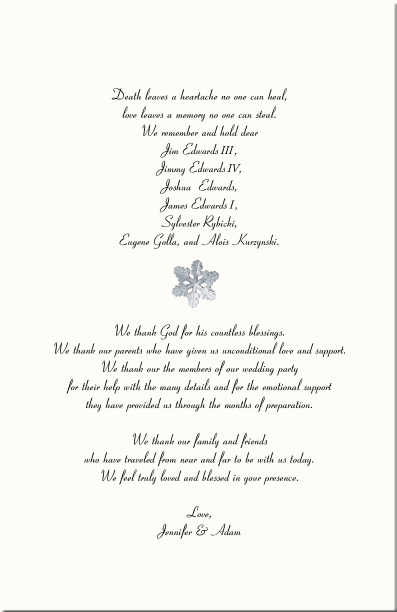 Death leaves a heartache no one can heal,
love leaves a memory no one can steal.
We remember and hold dear
Jim Edwards III,
Jimmy Edwards IV,
Joshua Edwards,
James Edwards I,
Sylvester Rybicki,
Eugene Golla, and Alois Kurzynski.
We thank God for his countless blessings.
We thank our parents who have given us unconditional love and support.
We thank our the members of our wedding party
for their help with the many details and for the emotional support
they have provided us through the months of preparation.
We thank our family and friends
who have traveled from near and far to be with us today.
We feel truly loved and blessed in your presence.
Love,
Jennifer & Adam